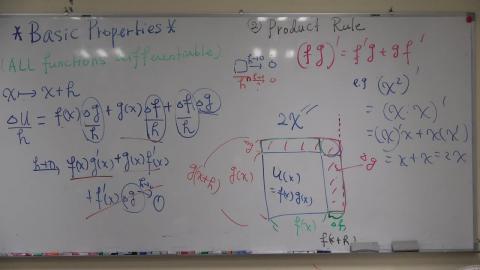 *Basic Properties*
(ALL functions differentiable)
x ↦ x+h
Δu/h = f(x) Δg/h + g(x) Δf/h + Δf/h Δg
h→0, f(x)g'(x) + g(x) f'(x)
+ f'(x) Δg h→0 0
② Product Rule
(fg)' = f'g + gf'
□ h→0 0
h h→0 0
?
e.g (x²)'
= (x·x)'
= (x)'x + x(x)'
= x + x = 2x
2x
g(x+h)
g(x)
u(x)
= f(x)g(x)
Δg
f(x)
Δf
f(x+h)